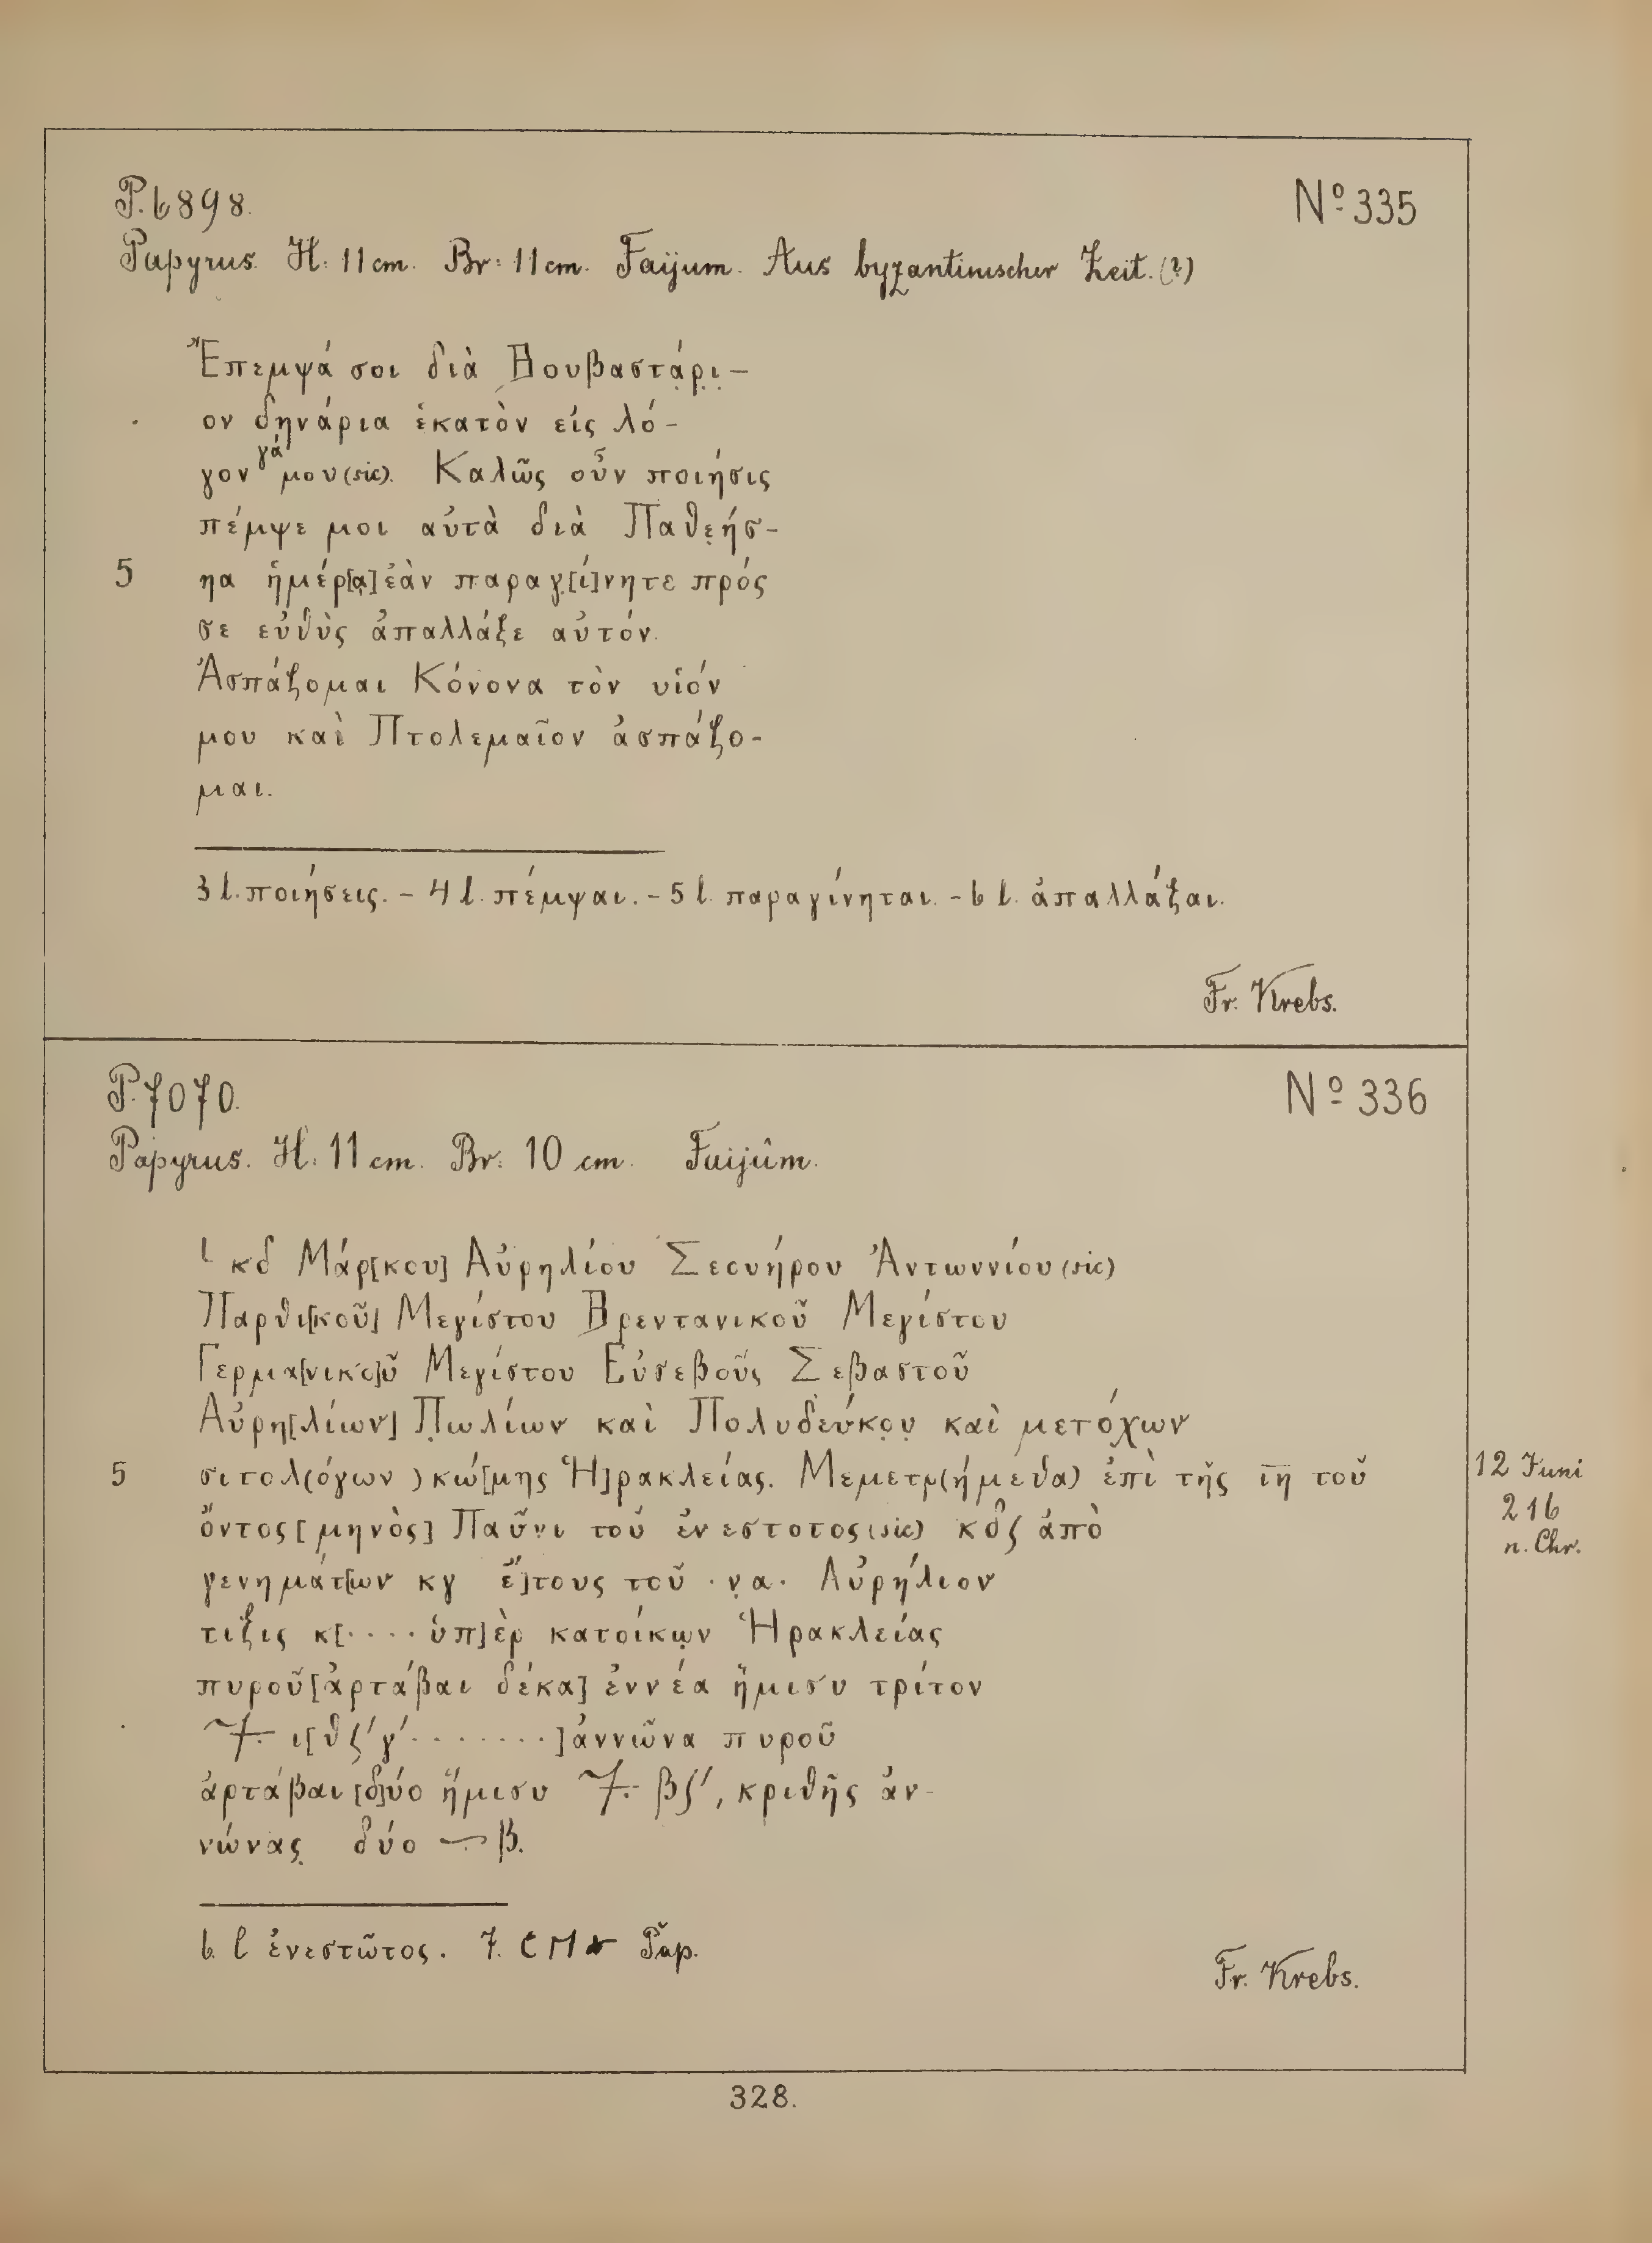 P. 6898. Nº 335
Papyrus. H: 11 cm. Br: 11 cm. Faijum. Aus byzantinischer Zeit. (?)
Ἔπεμψά σοι διὰ Βουβαστάρι-
ον δηνάρια ἑκατὸν εἰς λό-
γον γάμου (sic). Καλῶς οὖν ποιήσις
πέμψε μοι αὐτὰ διὰ Παθεήσ-
5 ηα ἡμέρ[α] ἐὰν παραγ[ί]νητε πρός
σε εὐθὺς ἀπαλλάξε αὐτόν.
Ἀσπάζομαι Κόνονα τὸν υἱόν
μου καὶ Πτολεμαῖον ἀσπάζο-
μαι.
3 l. ποιήσεις. – 4 l. πέμψαι. – 5 l. παραγίνηται. – 6 l. ἀπαλλάξαι.
Fr. Krebs.
P. 7070. Nº 336
Papyrus. H: 11 cm. Br: 10 cm. Faijûm.
L κδ Μάρ[κου] Αὐρηλίου Σεουήρου Ἀντωννίου (sic)
Παρθι[κοῦ] Μεγίστου Βρεντανικοῦ Μεγίστου
Γερμα[νικο]ῦ Μεγίστου Εὐσεβοῦς Σεβαστοῦ
Αὐρη[λίων] Πωλίων καὶ Πολυδεύκου καὶ μετόχων
5 σιτολ(όγων) κώ[μης Ἡ]ρακλείας. Μεμετρ(ήμεθα) ἐπὶ τῆς ιη τοῦ
ὄντος [μηνὸς] Παῦνι τοῦ ἐνεστοτος (sic) κδς ἀπὸ
γενημάτ[ων κγ ἔ]τους τοῦ · να · Αὐρήλιον
τιξις κ[···· ὑπ]ὲρ κατοίκων Ἡρακλείας
πυροῦ [ἀρτάβαι δέκα] ἐννέα ἥμισυ τρίτον
ι[θς´γ´ ········] ἀννῶνα πυροῦ
ἀρτάβαι [δ]ύο ἥμισυ βς´, κριθῆς ἀν-
νώνας δύο β.
6. l ἐνεστῶτος. 7. Pap.
Fr. Krebs.
12 Juni
216
n. Chr.
328.